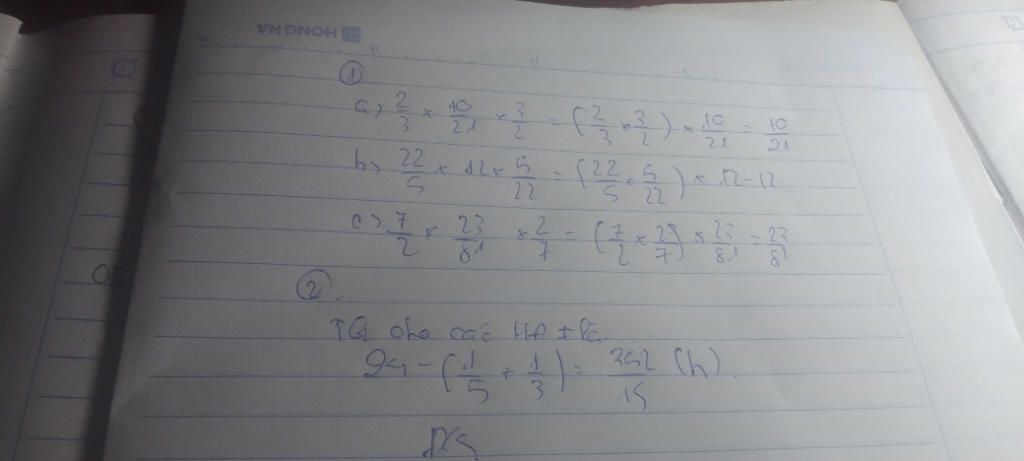 HONG HA
①
a) 2/3 × 10/21 × 3/2 = (2/3 × 3/2) × 10/21 = 10/21
b) 22/5 × 12 × 5/22 = (22/5 × 5/22) × 12 = 12
c) 7/2 × 23/81 × 2/7 = (7/2 × 2/7) × 23/81 = 23/81
②.
TG cho các HĐ
24 - (1/5 + 1/3) = 352/15 (h).
ĐS